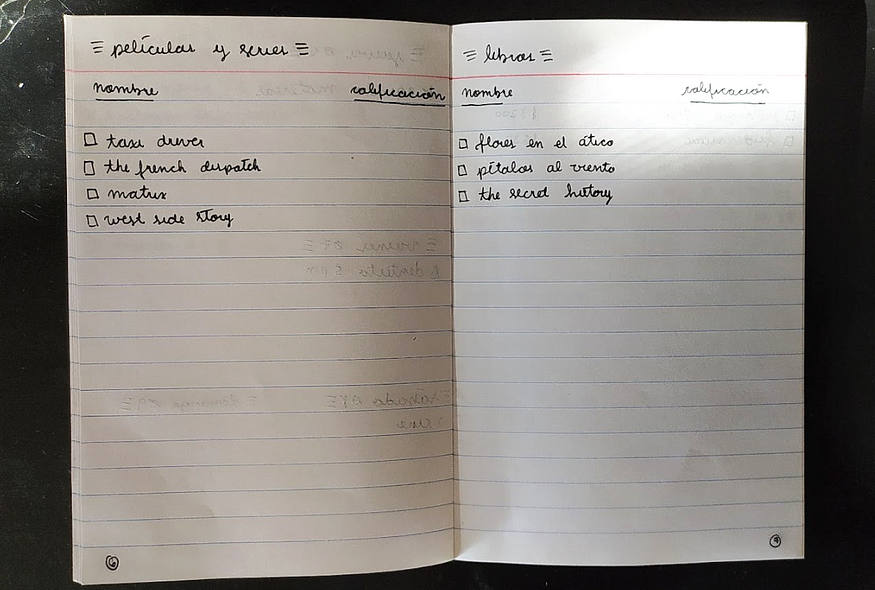 películas y series
nombre calificación
taxi driver
the french dispatch
matrix
west side story
6
libros
nombre calificación
flores en el ático
pétalos al viento
the secret history